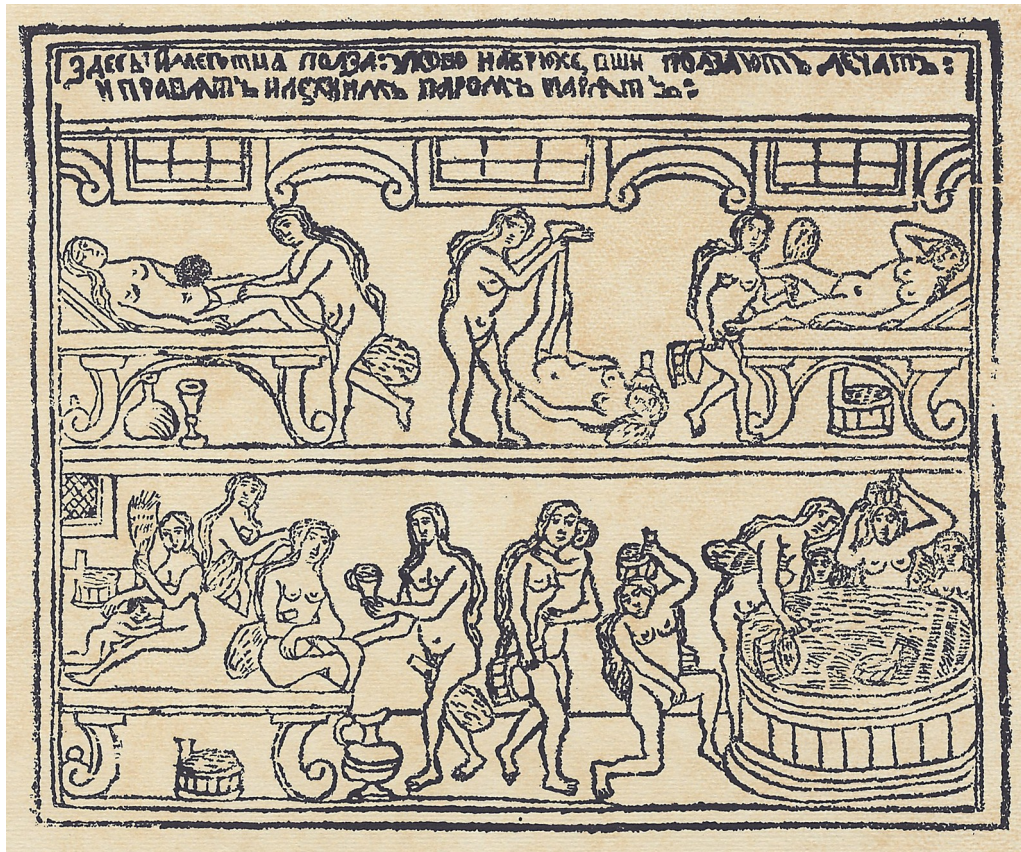 ЗДЕСЬ ИМЕЕТЦА ПОЛЗА: УКОВО НАБРЮХЕ ВШИ ПОЛЗАЮТЪ ЛЕЧАТЪ:
И ПРАВѦТЪ ИЛЕХКИМЪ ПАРОМЪ ПАРѦТЪ: